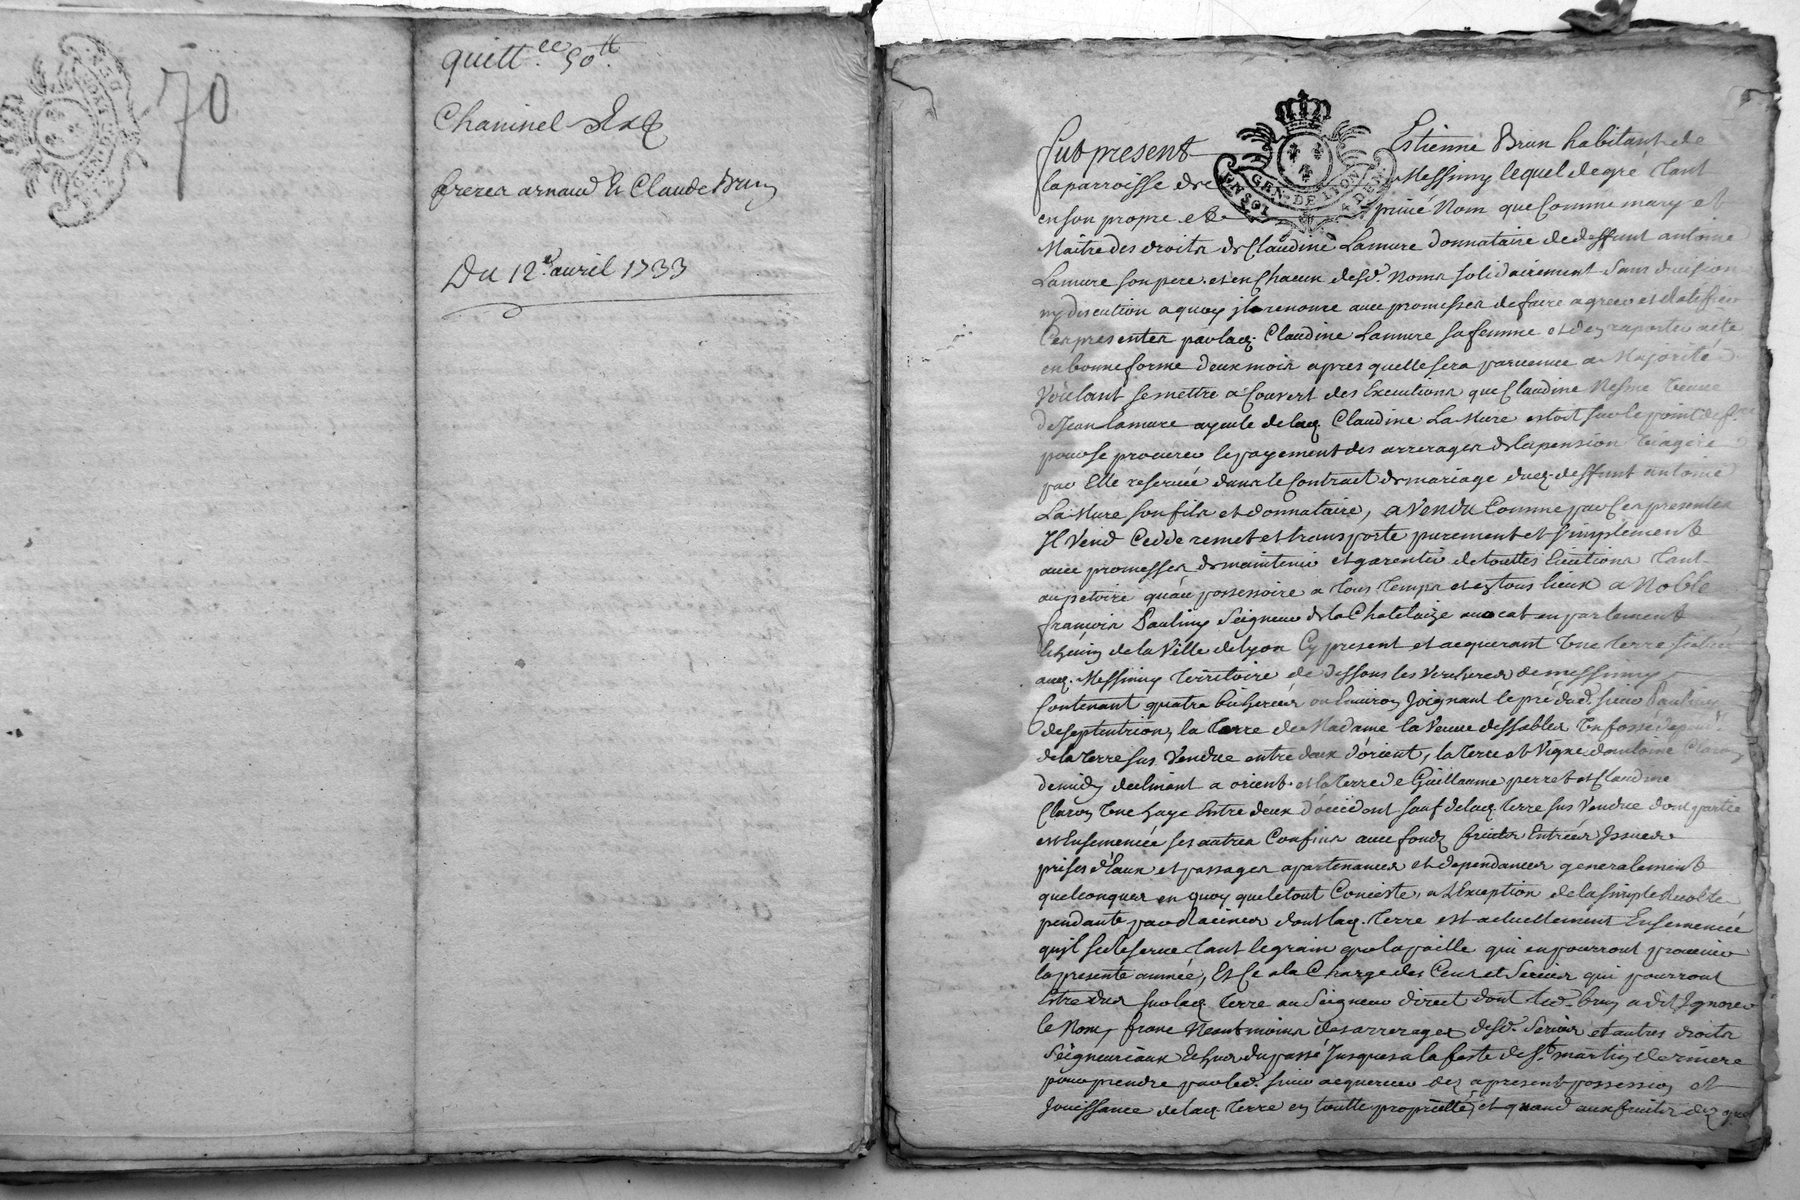 70
quitt.ce 50 tt
Chaninel
freres arnaud & Claude Brun
Du 12e avril 1733
GEN. DE LYON
Fut present Estienne Brun habitant de
la parroisse de Messimy lequel de gré tant
en son propre et privé Nom que Comme mary et
Maitre des droits de Claudine Lamure donnataire de deffunt antoine
Lamure son pere et en Chacun desd. Noms solidairement sans division
ny discution a quoy il renonce avec promesses de faire agreer et Ratifier
Ces presentes par lad. Claudine Lamure sa femme et d'en raporter acte
en bonne forme deux mois apres quelle sera parvenue a Majorité
Voulant se mettre a Couvert des Executions que Claudine Nesme veuve
de Jean Lamure ayeule de lad. Claudine La Mure estoit sur le point de f.re
pour se procurer le payement des arrerages de la pension viagere
par Elle reservée dans le Contract de mariage dud. deffunt antoine
La Mure son fils et donnataire, a Vendu Comme par Ces presentes
Il Vend Cedde remet et transporte purement et simplement
avec promesses de maintenir et garentir de touttes Evictions tant
au petoire qu'au possessoire a tous temps et en tous lieux a Noble
francois Pauliny Seigneur de la Chatelaize avocat en parlement
Echevin de la Ville de Lyon Cy present et acquerant Une terre située
aud. Messimy territoire de dessous les Vercheres de messimy
Contenant quatre bicherées ou Environ Joignant le pré dud. sieur Pauliny
de septentrion, la terre de Madame la Veuve des Sables Un fossé
de la terre sus Vendue entre deux d'orient, la terre et Vigne d'antoine Claron
de midy declinant a orient et la terre de Guillaume perret et Claudine
Claron Une haye Entre deux d'occident sauf de lad. terre sus Vendue dont partie
est Ensemencée ses autres Confins avec fonds fruits Entrées Issues
prises d'Eaux et passages apartenances et dependances generalement
quelconques en quoy que le tout Consiste, a l'Exception de la simple Recolte
pendante par Racines dont lad. terre est actuellement Ensemencée
qu'il se reserve tant le grain que la paille qui en pourront provenir
la presente année, Et Ce a la Charge des Cens et Servis qui pourront
Estre dus sur lad. terre au Seigneur direct dont led. brun a dit Ignorer
le Nom, franc Neantmoins des arrerages desd. Servis et autres droits
Seigneuriaux Echus du passé Jusques a la feste de St. martin derniere
pour prendre par led. sieur acquereur dez a present possession et
Jouissance de lad. terre en toutte proprietté, et quand aux fruits dez que